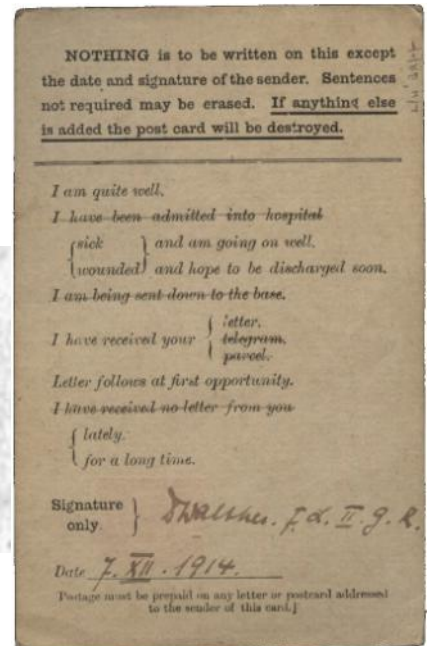 NOTHING is to be written on this except
the date and signature of the sender. Sentences
not required may be erased. If anything else
is added the post card will be destroyed.
I am quite well.
I have been admitted into hospital
{ sick } and am going on well.
{ wounded } and hope to be discharged soon.
I am being sent down to the base.
I have received your { letter.
telegram.
parcel.
Letter follows at first opportunity.
I have received no letter from you
{ lately.
for a long time.
Signature
only. }
Date 7. XII. 1914.
Postage must be prepaid on any letter or postcard addressed
to the sender of this card.]